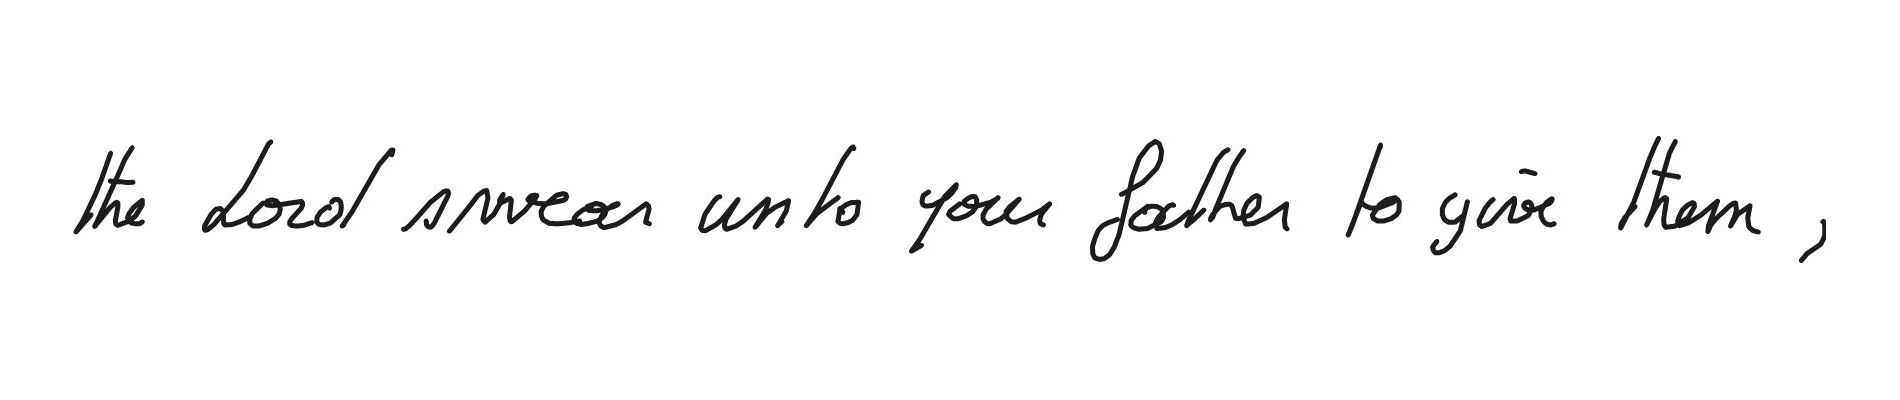 the Lord swear unto your father to give them ,